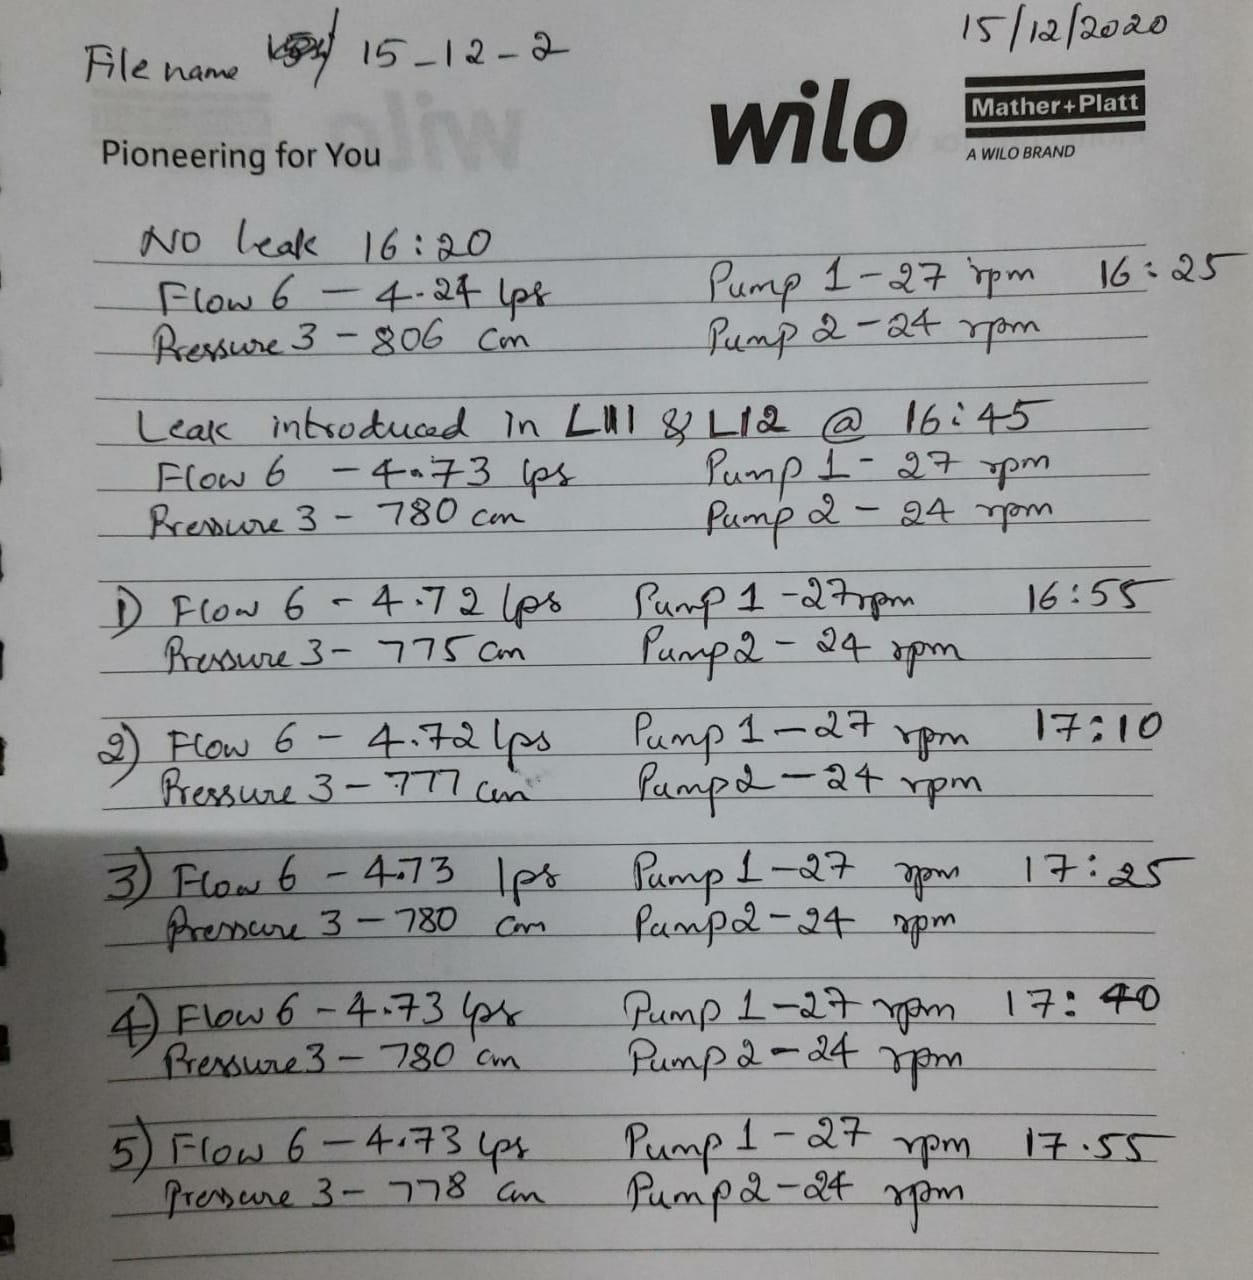 15/12/2020
File name 15-12-2
wilo
Mather+Platt
A WILO BRAND
Pioneering for You
No leak 16:20
Flow 6 - 4.24 lps Pump 1-27 rpm 16:25
Pressure 3 - 806 cm Pump 2-24 rpm
Leak introduced in L111 & L12 @ 16:45
Flow 6 - 4.73 lps Pump 1- 27 rpm
Pressure 3 - 780 cm Pump 2 - 24 rpm
1) Flow 6 - 4.72 lps Pump 1 -27rpm 16:55
Pressure 3- 775 cm Pump 2 - 24 rpm
2) Flow 6 - 4.72 lps Pump 1-27 rpm 17:10
Pressure 3 - 777 cm Pump 2 - 24 rpm
3) Flow 6 - 4.73 lps Pump 1-27 rpm 17:25
Pressure 3 - 780 cm Pump 2-24 rpm
4) Flow 6 - 4.73 lps Pump 1-27 rpm 17:40
Pressure 3 - 780 cm Pump 2-24 rpm
5) Flow 6 - 4.73 lps Pump 1 - 27 rpm 17.55
Pressure 3 - 778 cm Pump 2-24 rpm